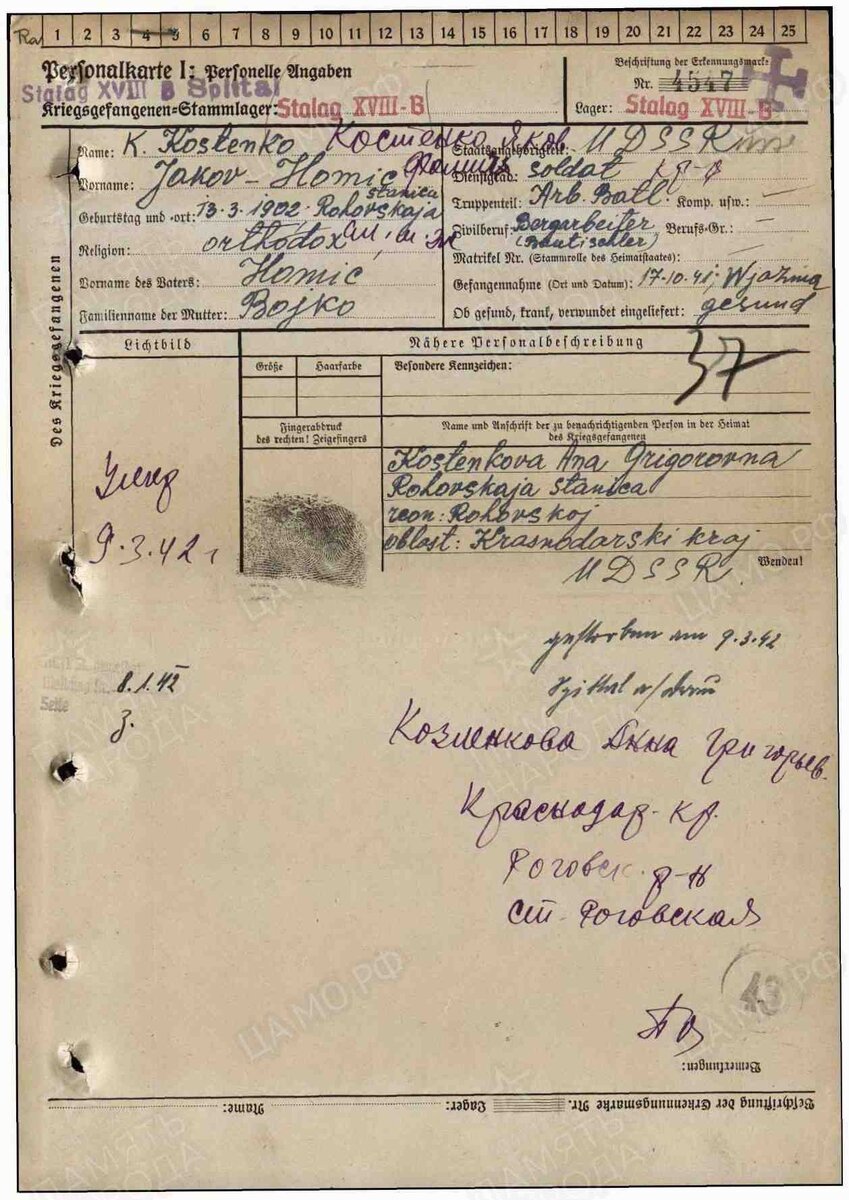 Ra 1 2 3 4 5 6 7 8 9 10 11 12 13 14 15 16 17 18 19 20 21 22 23 24 25
Personalkarte I: Personelle Angaben
Stalag XVIII B Spittal
Kriegsgefangenen-Stammlager: Stalag XVIII-B
Beschriftung der Erkennungsmarke
Nr. 4547
Lager: Stalag XVIII-B
Des Kriegsgefangenen
Name: K. Kostenko Костенко Яков
Vorname: Jakov-Homic Фомич
Geburtstag und -ort: 13.3.1902 Rohovskaja stanica
Religion: orthodox
Vorname des Vaters: Homic
Familienname der Mutter: Bojko
Staatsangehörigkeit: UDSSR
Dienstgrad: Soldat кр-ц
Truppenteil: Arb. Batl. Komp. usw.: —
Zivilberuf: Bergarbeiter Berufs-Gr.: —
(Bautischler)
Matrikel Nr. (Stammrolle des Heimatstaates): —
Gefangennahme (Ort und Datum): 17.10.41, Wjazma
Ob gesund, krank, verwundet eingeliefert: gesund
Lichtbild
Nähere Personalbeschreibung
Größe
Haarfarbe
Besondere Kennzeichen:
37
Fingerabdruck
des rechten! Zeigefingers
Name und Anschrift der zu benachrichtigenden Person in der Heimat
des Kriegsgefangenen
Kostenkova Ana Grigorovna
Rohovskaja stanica
reon: Rohovskoj
oblast: Krasnodarski kraj
UDSSR.
Wenden!
Умер
9.3.42 г
gestorben am 9.3.42
Spittal a/Drau
Seite
8.1.42
З.
Козменкова Анна Григорьев.
Краснодар. кр.
Роговск. р-н
ст. Роговская
13
Bemerkungen:
Beschriftung der Erkennungsmarke Nr. Lager: Name:
ПАМЯТЬ НАРОДА
ЦАМО.РФ